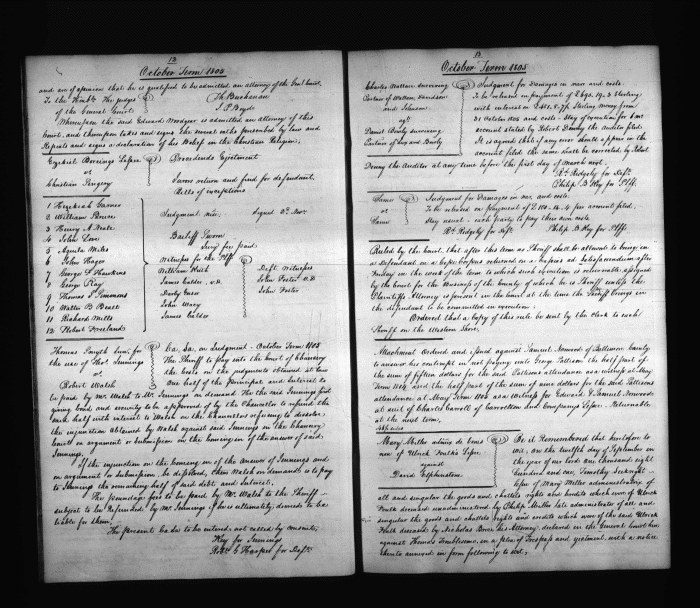 12
October Term 1805
and are of opinion that he is qualified to be admitted an attorney of the Gen.l Court.
To the Honble the Judges
of the General Court
Th: Buchanan
J. P. Boyd
Whereupon the said Edward is admitted an attorney of this
Court, and thereupon takes and signs the several oaths prescribed by law and
Repeats and signs a declaration of his Belief in the Christian Religion.
Ezekiel Lessee
vs
Christian Gengery
Procedendo Ejectment
Narr return and for defendant.
Bills of exceptions
1 Hezekiah
2 William
3 Henry A Neale
4 John Love
5 Miles
6 John Hages
7 George Hawkins
8 George Ray
9 Thomas Simmons
10 Walter B Beall
11 Richard Mills
12 Robert Freeland
Judgment nisi, Signed
Bailiff Sworn
Jury fee paid
Witness for the Plff.
William Keith
James Calder
Darby Case
John Wary
James Calder
Deft. Witnesses
John
John Foster
Thomas Smyth for
the use of Thos. Jennings
vs.
Robert Walsh
Ca. Sa. on Judgment. October Term 1805
The Sheriff to pay into the Court of Chancery
the costs on the judgments obtained at law
One half of the principal and interest to
be paid by Mr. Walsh to Mr. Jennings on demand. He the said Jennings first
giving bond and security to be approved of by the Chancellor to refund the
such half with interest on the Chancellor refusing to dissolve
the injunction obtained by Walsh against said Jennings in the Chancery
Court on argument or submission on the coming in of the answer of said
Jennings.
If the injunction on the coming in of the answer of Jennings and
on argument or submission, be dissolved, then Walsh on demand, is to pay
to Jennings the remaining half of said debt and interest.
The poundage fees to be paid by Mr. Walsh to the Sheriff
subject to be refunded by Mr. Jennings if he is ultimately deemed to be
liable for them;
The present Ca. Sa. to be entered not called by consent;
Key for Jennings
Robt. G Harper for Deft.
13
October Term 1805
Charles Wallace surviving
Partner of Wallace Davidson
and Johnson.
agt.
Daniel Bowly surviving
Partner of and Bowly
Judgment for Damages in narr and costs.
To be released on payment of Sterling
with interest on Sterling money from
31 October 1805 and costs. Stay of execution for 6 mo.
account stated by Robert Denny the auditor filed.
It is agreed that if any error should appear in the
account filed the same shall be corrected by Robert
Denny the Auditor at any time before the first day of March next.
Rd. Ridgely for Deft.
Philip B Key for Plff.
Same
vs
Same
Judgment for Damages in narr. and costs.
To be released on payment of £ 100.14.4 per account filed.
Stay usual - each party to pay their own costs.
Rd. Ridgely for Deft Philip B Key for Plff.
Ruled by the Court, that after this term no Sheriff shall be allowed to bring in
a Defendant on a Cepi Corpus returned on a Capias ad Satisfaciendum after
Friday in the week of the term to which such execution is returnable, assigned
by the Court for the Business of the County of which he is Sheriff unless the
Plaintiffs Attorney is present in the Court at the time the Sheriff brings in
the defendant to be committed in execution.
Ordered that a copy of this rule be sent by the clerk to each
Sheriff on the Western Shore.
Attachment Ordered and issued against Samuel Norwood of Baltimore County
to answer his contempt in not paying unto George Pattison the half part of
the sum of fifteen dollars for the said Pattisons attendance as a witness at May
Term 1804 and the half part of the sum of nine dollars for the said Pattisons
attendance at May Term 1805 as a witness for Edward & Samuel Norwoods
at suit of Charles Carroll of Carrollton and Companys Lessee. Returnable
at the next term,
Mary Miller admx de bonis
non of Ulrick Lessee
against
David Elphenstone
Be it Remembered that heretofore to
wit, on the twelfth day of September in
the year of our lord one thousand eight
hundred and one, Timothy
Lessee of Mary Miller administratrix of
all and singular the goods and chattels rights and credits which were of Ulrick
deceased unadministered by Philip Miller late administrator of all and
singular the goods and chattels rights and credits which were of the said Ulrick
deceased, by Nicholas Brice his Attorney, declared in the General Court here
against Thomas Troublesome, in a plea of Trespass and ejectment, with a notice
thereto annexed in form following to wit,